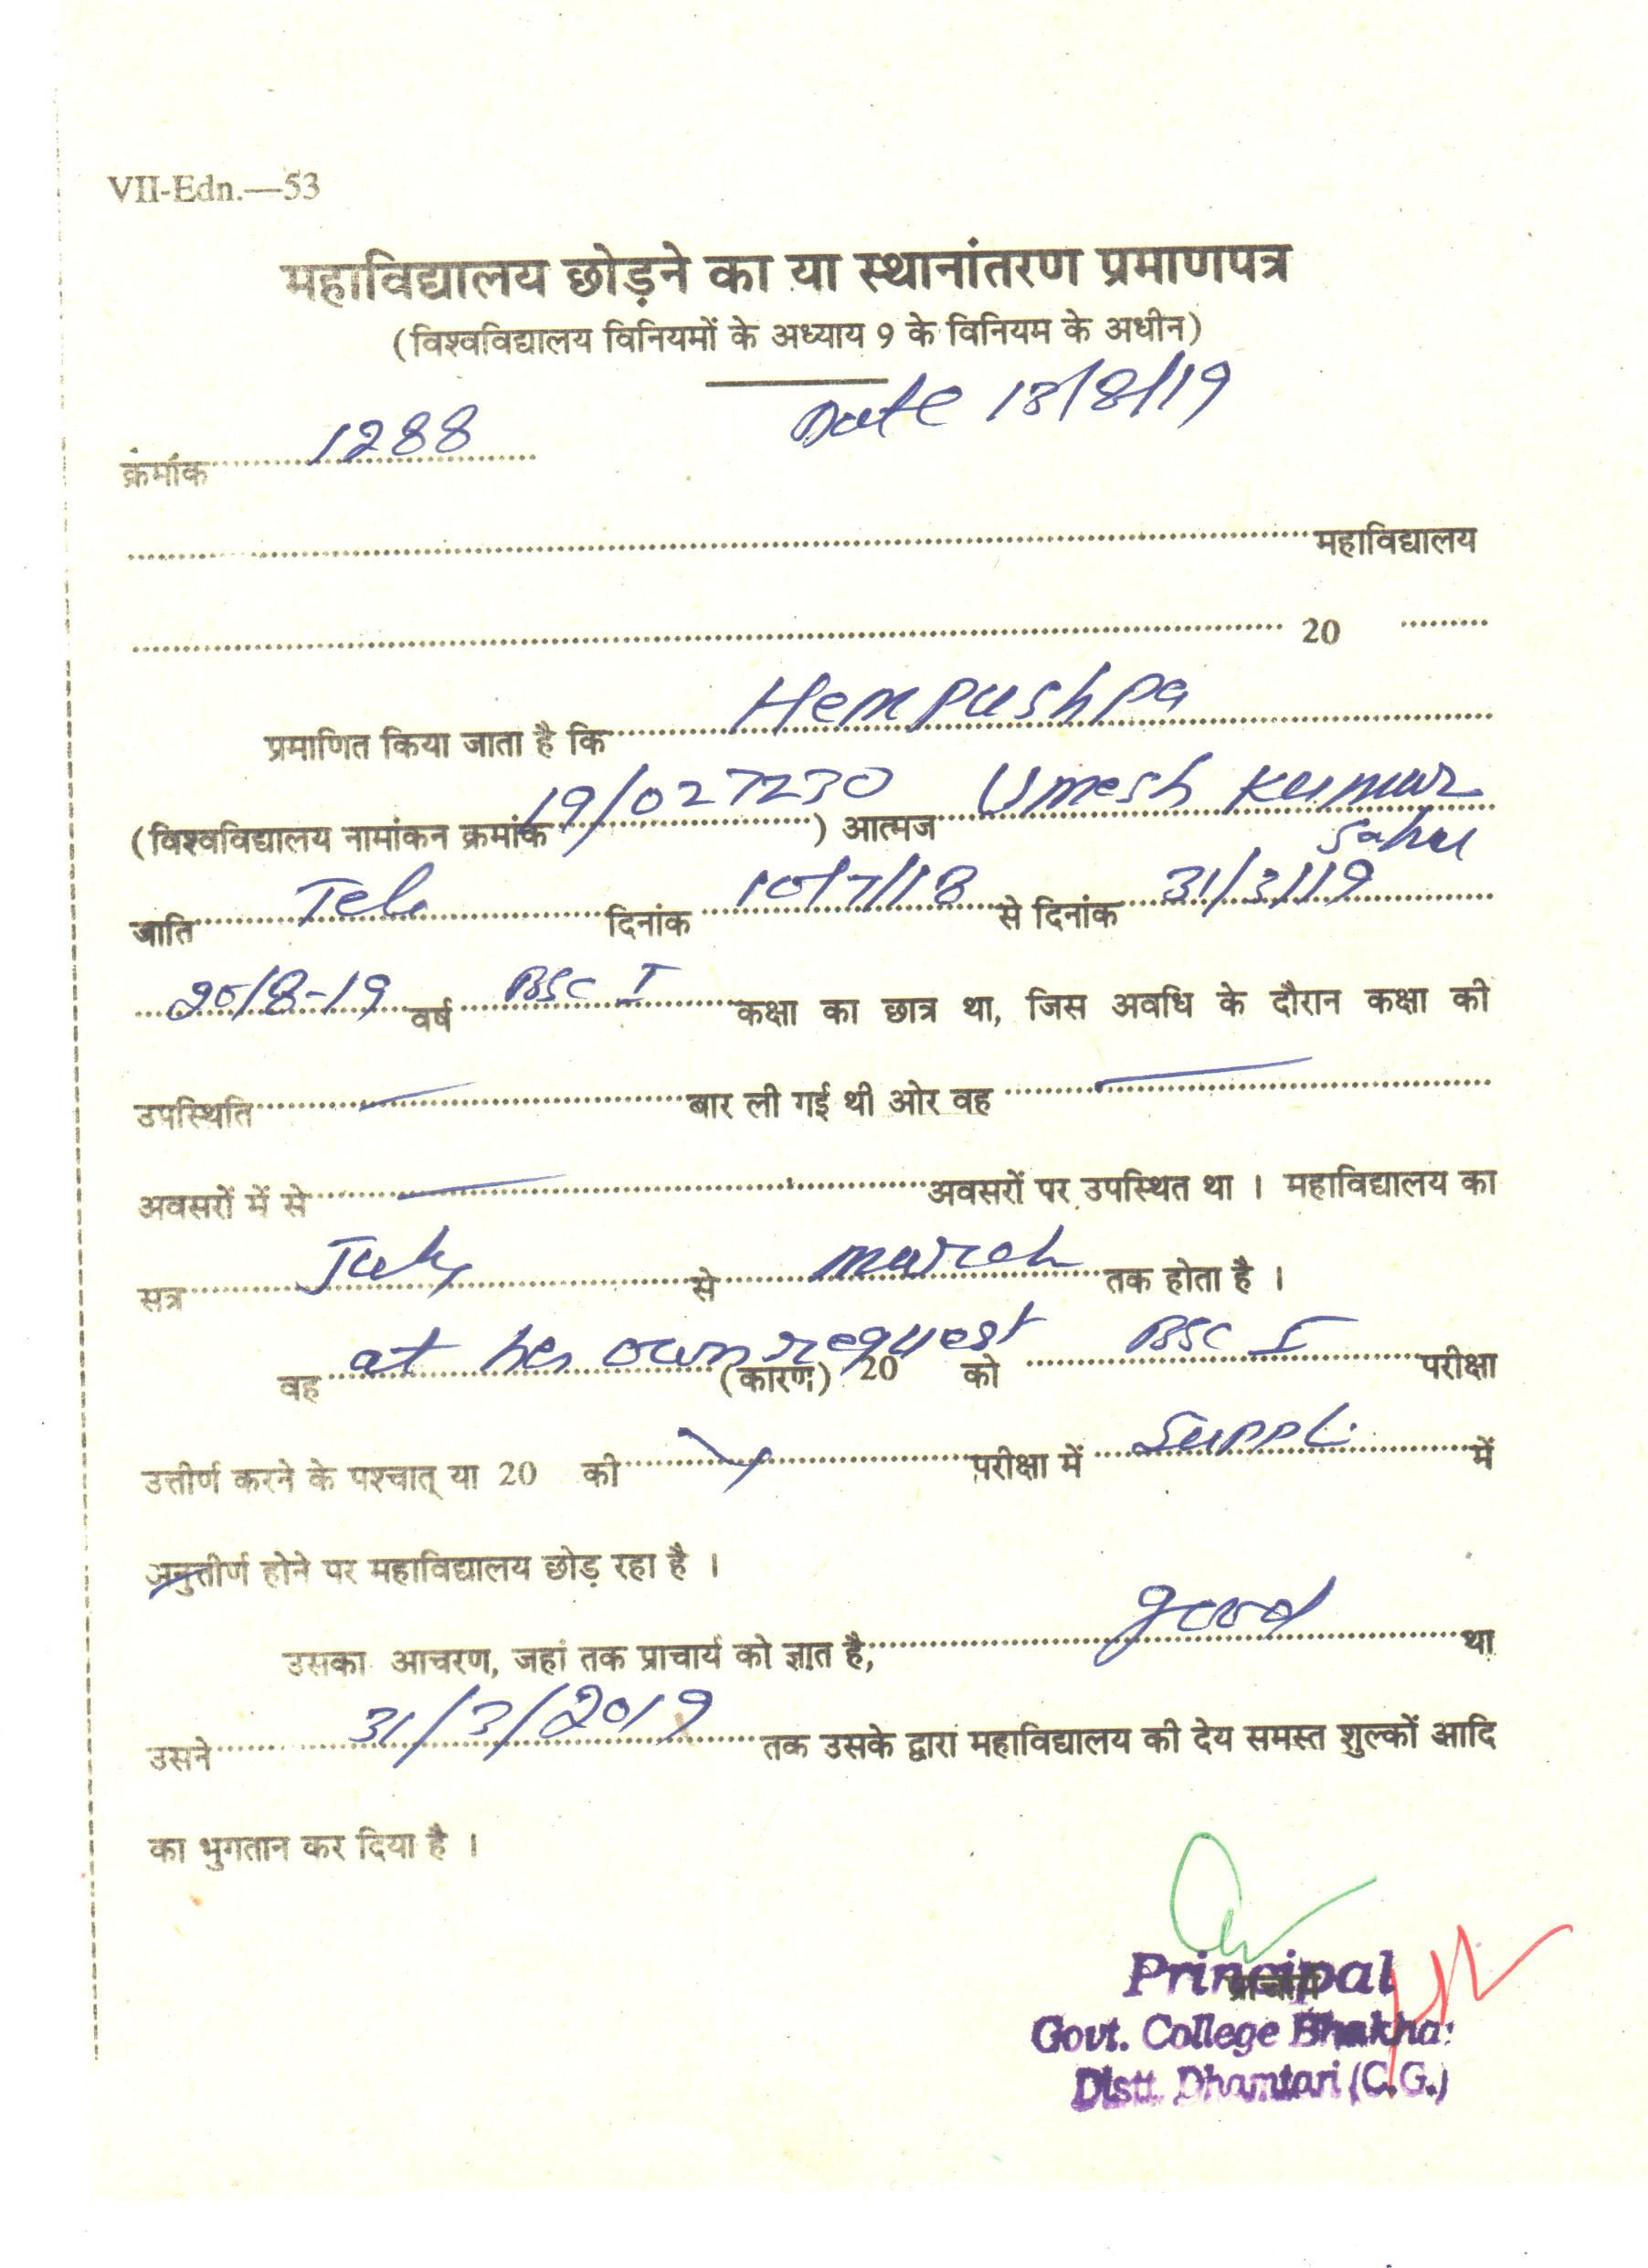 VII-Edn.—53
महाविद्यालय छोड़ने का या स्थानांतरण प्रमाणपत्र
(विश्वविद्यालय विनियमों के अध्याय 9 के विनियम के अधीन)
Date 13/8/19
क्रंमांक 1288
महाविद्यालय
20
प्रमाणित किया जाता है कि Hempushpa
(विश्वविद्यालय नामांकन क्रमांक 19/027230) आत्मज Umesh Kumar
Sahu
जाति Teli दिनांक 10/7/18 से दिनांक 31/3/19
2018-19 वर्ष BSC I कक्षा का छात्र था, जिस अवधि के दौरान कक्षा की
उपस्थिति — बार ली गई थी ओर वह —
अवसरों में से — अवसरों पर उपस्थित था । महाविद्यालय का
सत्र July से march तक होता है ।
वह at her own request (कारण) 20 को BSC I परीक्षा
उत्तीर्ण करने के पश्चात् या 20 की परीक्षा में Suppl. में
अनुत्तीर्ण होने पर महाविद्यालय छोड़ रहा है ।
उसका आचरण, जहां तक प्राचार्य को ज्ञात है, good था
उसने 31/3/2019 तक उसके द्वारा महाविद्यालय की देय समस्त शुल्कों आदि
का भुगतान कर दिया है ।
Principal
प्राचार्य
Govt. College Bhakha
Distt. Dhamtari (C.G.)